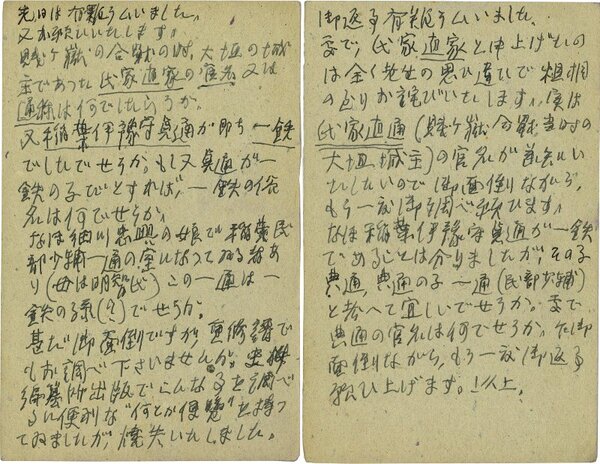 先日は有難うムいました。
又お願ひいたします。
賤ヶ嶽の合戦の時、大垣の城
主であった氏家直家の官名又は
通称は何でしたらうか。
又稲葉伊豫守貞通が即ち一鉄
でしたでせうか。もし又貞通が一
鉄の子だとすれば、一鉄の俗
名は何でせうか。
なほ細川忠興の娘で稲葉民
部少輔一通の室になってゐる者あ
り(母は明智氏)この一通は一
鉄の孫(?)でせうか。
甚だ御面倒ですが、重修譜で
もお調べ下さいませんか。
出版でこんな事を調べ
るに便利な“何とか便覧”を持っ
てゐましたが、焼失いたしました。
御返事有難うムいました。
変で、氏家直家と申上げたの
は全く老生の思ひ違ひで粗忽
の至りお詫びいたします。実は
氏家直通(賤ヶ嶽合戦当時の
大垣城主)の官名が
たしたいので御面倒ながら、
もう一度御調べ願ひます。
なほ稲葉伊豫守貞通が一鉄
であることは分りましたが、その子
典通、典通の子一通(民部少輔)
と考へて宜しいでせうか。
典通の官名は何でせうか。御
面倒ながら、もう一度御返事
願ひ上げます。以上。